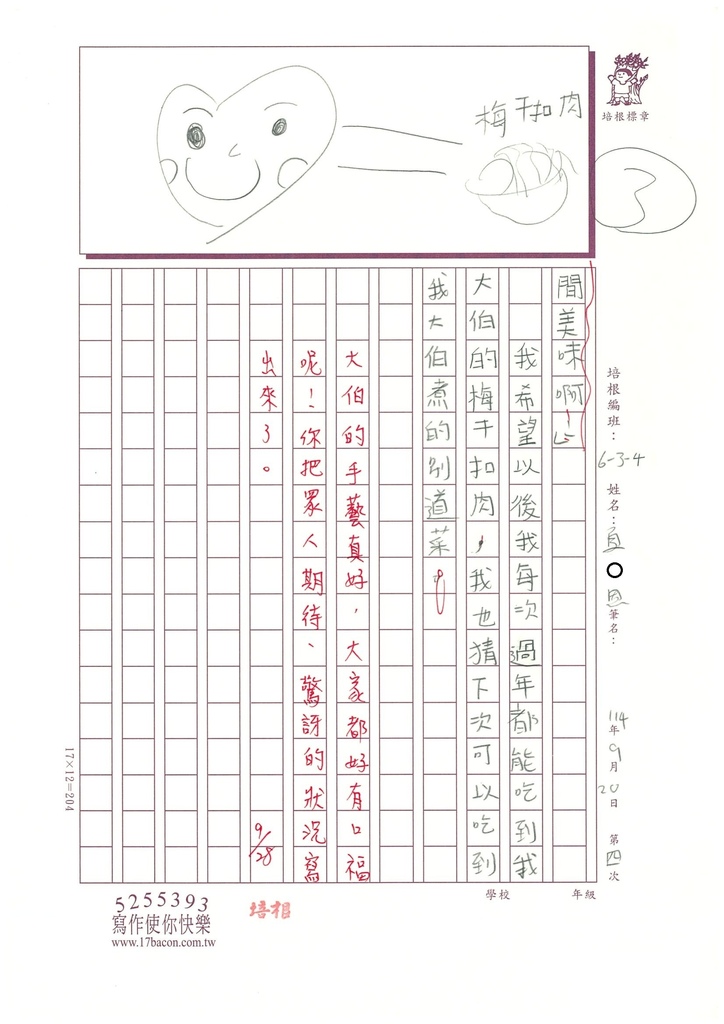 梅干扣肉
培根標章
3
間美味啊！」
我希望以後我每次過年都能吃到我
大伯的梅干扣肉，我也猜下次可以吃到
我大伯煮的別道菜。
大伯的手藝真好，大家都好有口福
呢！你把眾人期待、驚訝的狀況寫
出來了。
9/28
培根編班：6-3-4
姓名：
筆名：
114年9月20日
第四次
17×12=204
學校
年級
5255393
寫作使你快樂
www.17bacon.com.tw
培根